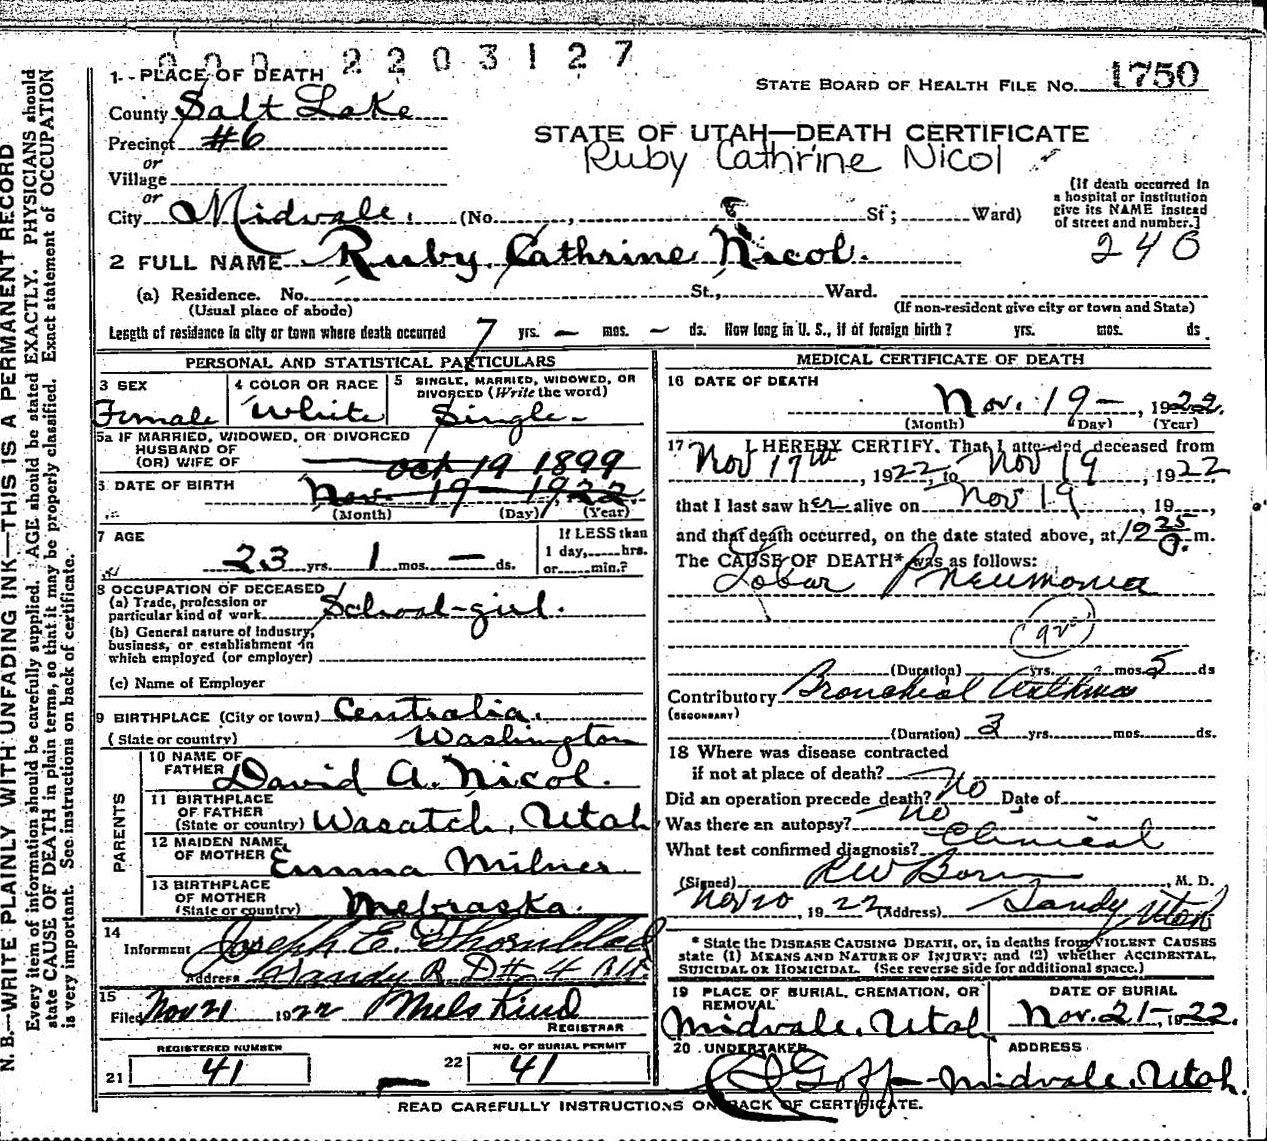 000 2203127
1 PLACE OF DEATH
STATE BOARD OF HEALTH FILE No. 1750
County Salt Lake
Precinct #6
STATE OF UTAH—DEATH CERTIFICATE
or
Ruby Cathrine Nicol
Village
or
City Midvale. (No. , St; Ward)
(If death occurred in
a hospital or institution
give its NAME instead
of street and number.]
2 FULL NAME Ruby Cathrine Nicol.
240
(a) Residence. No. St., Ward.
(Usual place of abode)
(If non-resident give city or town and State)
Length of residence in city or town where death occurred 7 yrs. — mos. — ds. How long in U. S., if of foreign birth? yrs. mos. ds
PERSONAL AND STATISTICAL PARTICULARS
3 SEX
Female
4 COLOR OR RACE
White
5 SINGLE, MARRIED, WIDOWED, OR
DIVORCED (Write the word)
Single
5a IF MARRIED, WIDOWED, OR DIVORCED
HUSBAND OF
(OR) WIFE OF
Oct 19 1899
6 DATE OF BIRTH Nov. 19 — 1922.
(Month) (Day) (Year)
7 AGE
23 yrs. 1 mos. — ds.
If LESS than
1 day, hrs.
or min.?
8 OCCUPATION OF DECEASED
(a) Trade, profession or
particular kind of work School-girl.
(b) General nature of Industry,
business, or establishment in
which employed (or employer)
(c) Name of Employer
9 BIRTHPLACE (City or town) Centralia.
(State or country) Washington
PARENTS
10 NAME OF
FATHER David A. Nicol.
11 BIRTHPLACE
OF FATHER
(State or country) Wasatch, Utah
12 MAIDEN NAME
OF MOTHER Emma Milner
13 BIRTHPLACE
OF MOTHER
(State or country) Nebraska.
14
Informent Joseph E. Thornblad
Address Sandy R. D # 4
15
Filed Nov 21 1922 Niels Lind
REGISTRAR
REGISTERED NUMBER
21 41
NO. OF BURIAL PERMIT
22 41
MEDICAL CERTIFICATE OF DEATH
16 DATE OF DEATH
Nov. 19 — , 1922.
(Month) (Day) (Year)
17 I HEREBY CERTIFY, That I attended deceased from
Nov 17th , 1922, to Nov 19 , 1922
that I last saw her alive on Nov 19 , 19 ,
and that death occurred, on the date stated above, at 12 25 P. m.
The CAUSE OF DEATH* was as follows:
Lobar Pneumonia
(92)
(Duration) yrs. mos. 5 ds
Contributory Bronchial Asthma
(SECONDARY)
(Duration) 3 yrs. mos. ds.
18 Where was disease contracted
if not at place of death?
Did an operation precede death? No Date of
Was there an autopsy? No
What test confirmed diagnosis? Clinical
(Signed) M. D.
Nov 20 , 1922 (Address) Sandy Utah
* State the DISEASE CAUSING DEATH, or, in deaths from VIOLENT CAUSES
state (1) MEANS AND NATURE OF INJURY; and (2) whether ACCIDENTAL,
SUICIDAL OR HOMICIDAL. (See reverse side for additional space.)
19 PLACE OF BURIAL, CREMATION, OR
REMOVAL
Midvale, Utah
DATE OF BURIAL
Nov. 21-, 1922.
20 UNDERTAKER
Goff
ADDRESS
Midvale, Utah.
READ CAREFULLY INSTRUCTIONS ON BACK OF CERTIFICATE.
N. B.—WRITE PLAINLY WITH UNFADING INK—THIS IS A PERMANENT RECORD
Every item of information should be carefully supplied. AGE should be stated EXACTLY. PHYSICIANS should
state CAUSE OF DEATH in plain terms, so that it may be properly classified. Exact statement of OCCUPATION
is very important. See instructions on back of certificate.